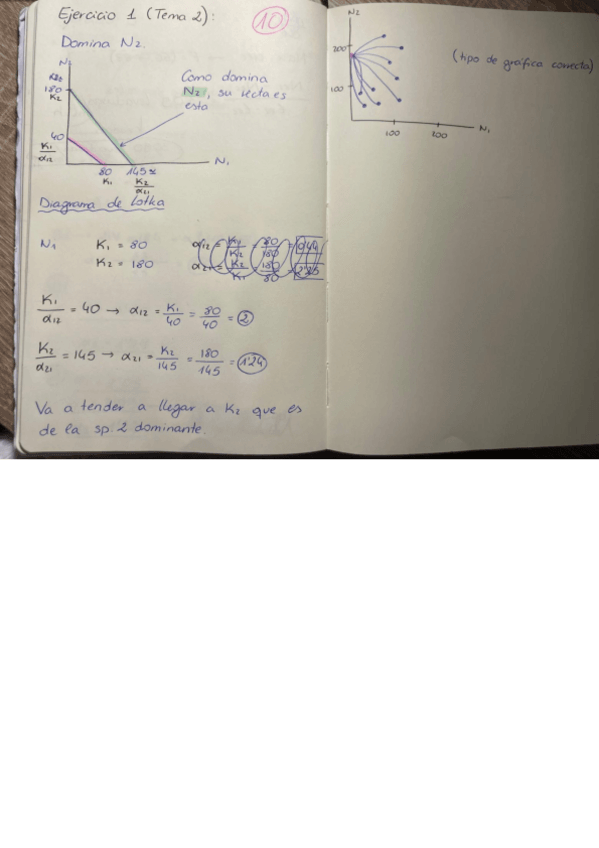 Ejercicio 1 (Tema 2):
10
Domina N₂.
N₂
180
K₂
40
K₁
α₁₂
80
K₁
145
K₂
α₂₁
N₁
Como domina
N₂, su recta es
esta
Diagrama de Lotka
N₁ K₁ = 80
K₂ = 180
α₁₂ = K₁/K₂ = 80/180 = 0'44
α₂₁ = K₂/K₁ = 180/80 = 2'25
K₁/α₁₂ = 40 → α₁₂ = K₁/40 = 80/40 = 2
K₂/α₂₁ = 145 → α₂₁ = K₂/145 = 180/145 = 1'24
Va a tender a llegar a K₂ que es
de la sp. 2 dominante.
N₂
200
100
100
200
N₁
(tipo de gráfica correcta)